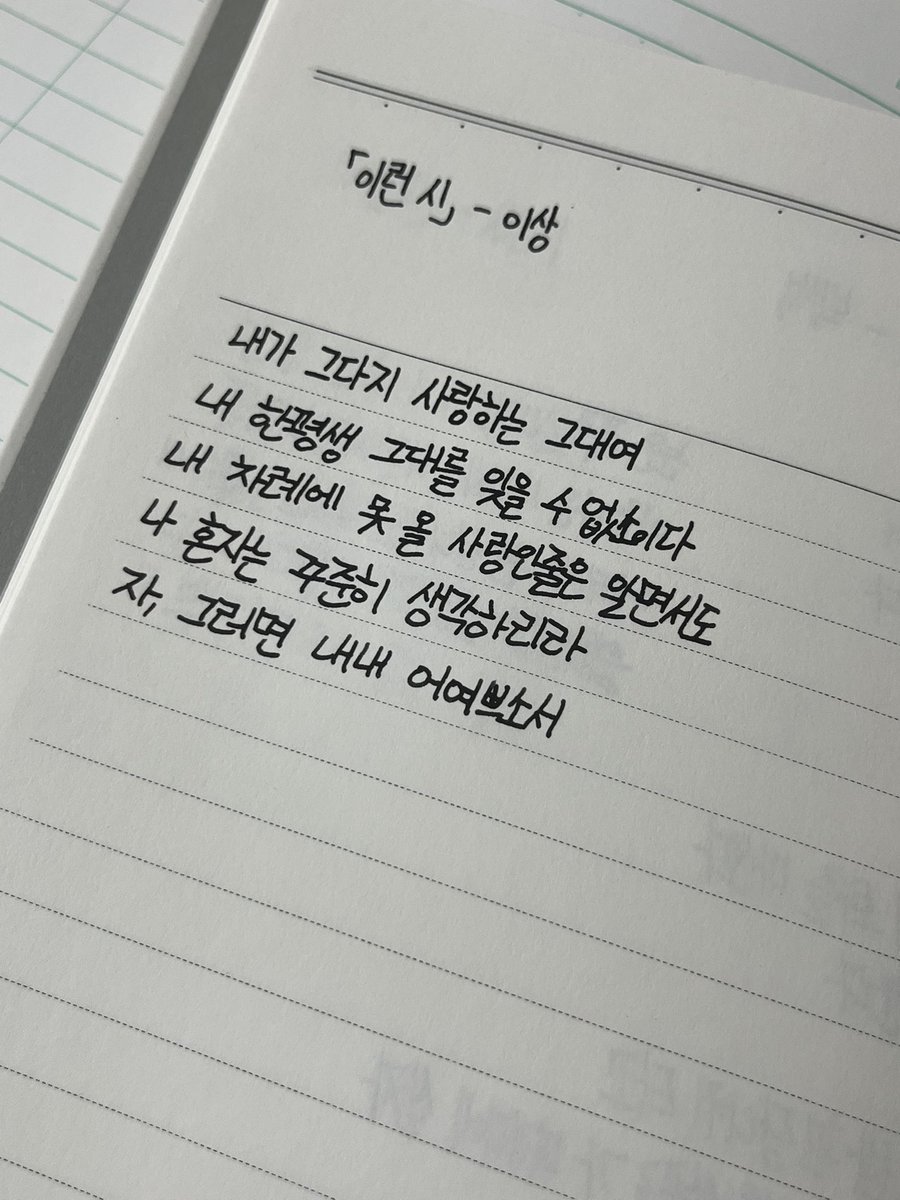 「이런 시」 - 이상
내가 그다지 사랑하는 그대여
내 한평생 그대를 잊을 수 없소이다
내 차례에 못 올 사랑인줄은 알면서도
나 혼자는 꾸준히 생각하리라
자, 그러면 내내 어여쁘소서